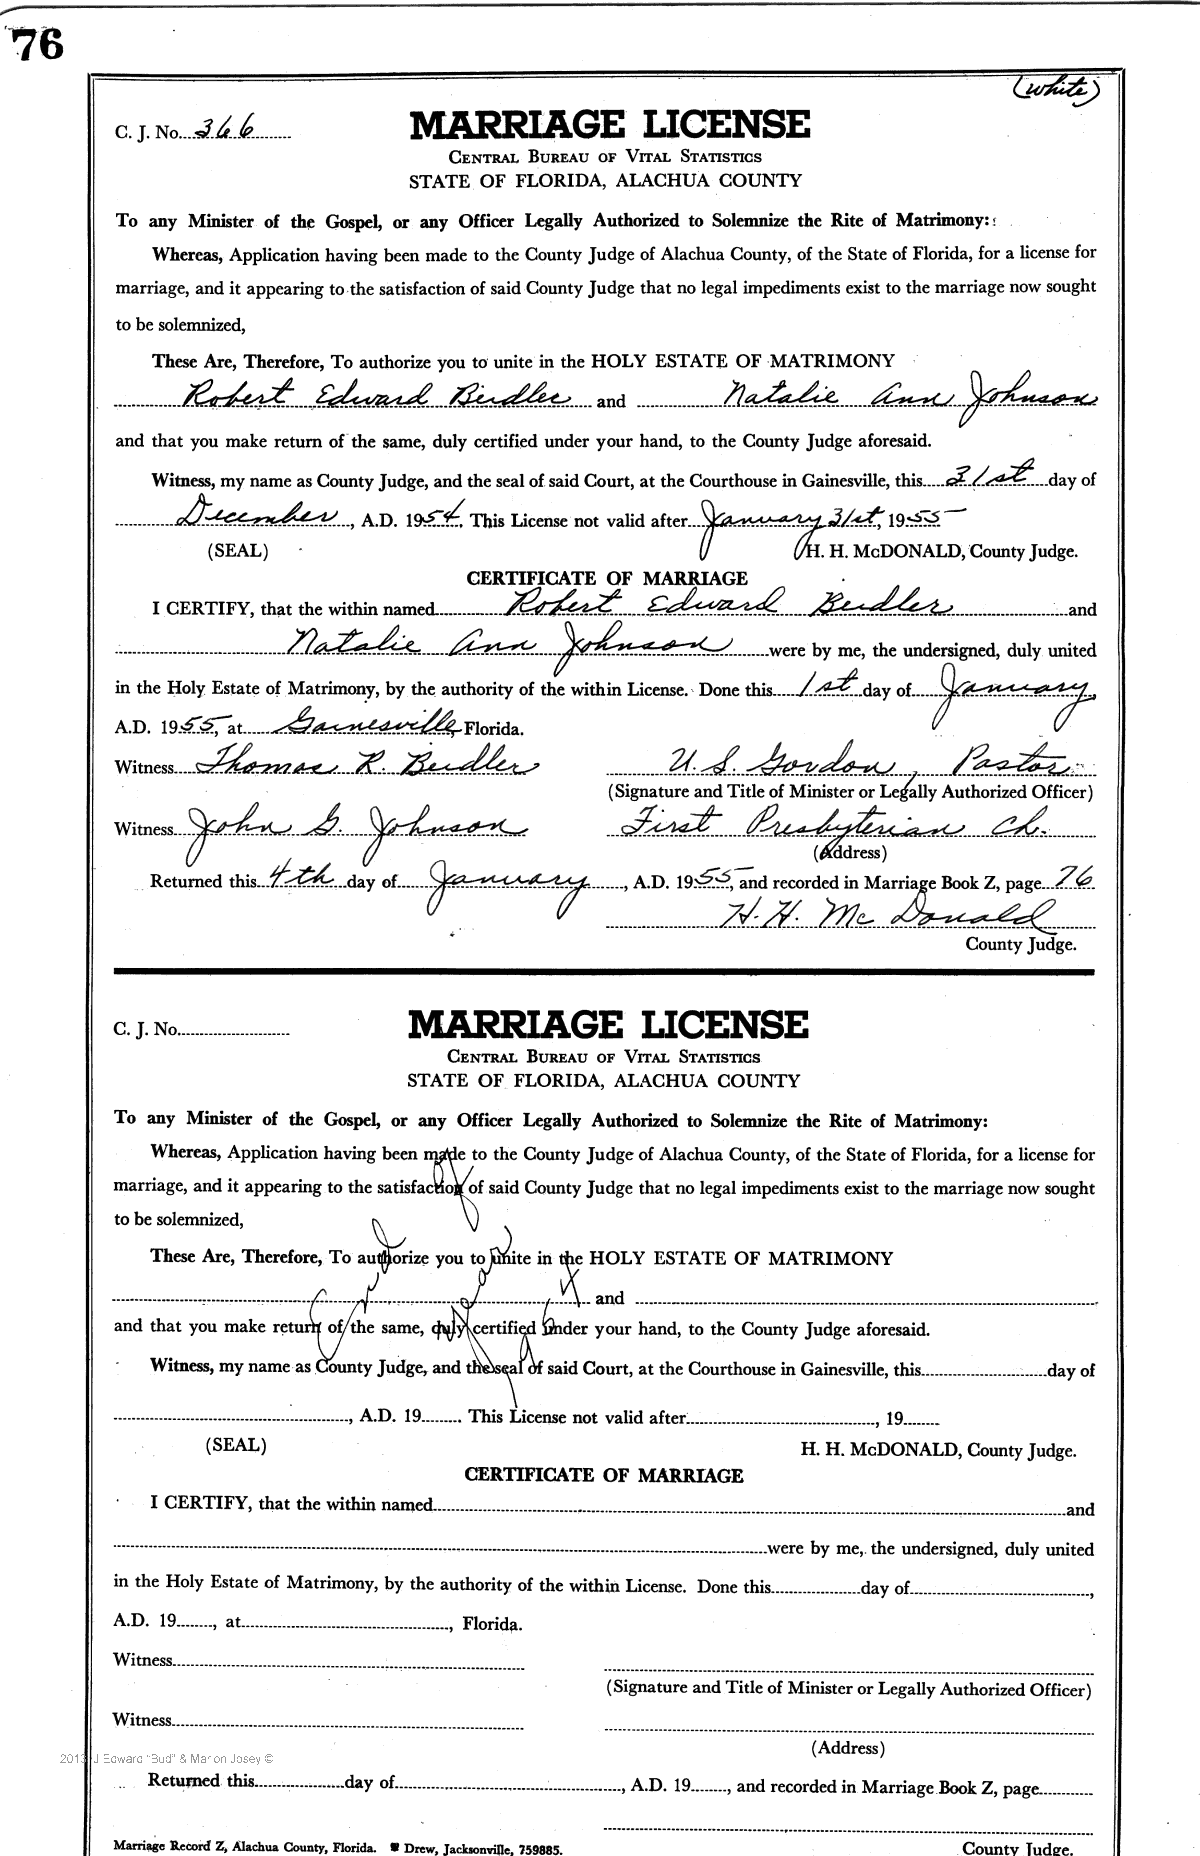 76
(white)
C. J. No. 366
MARRIAGE LICENSE
CENTRAL BUREAU OF VITAL STATISTICS
STATE OF FLORIDA, ALACHUA COUNTY
To any Minister of the Gospel, or any Officer Legally Authorized to Solemnize the Rite of Matrimony:
Whereas, Application having been made to the County Judge of Alachua County, of the State of Florida, for a license for
marriage, and it appearing to the satisfaction of said County Judge that no legal impediments exist to the marriage now sought
to be solemnized,
These Are, Therefore, To authorize you to unite in the HOLY ESTATE OF MATRIMONY
Robert Edward Beidler and Natalie Ann Johnson
and that you make return of the same, duly certified under your hand, to the County Judge aforesaid.
Witness, my name as County Judge, and the seal of said Court, at the Courthouse in Gainesville, this 31st day of
December, A.D. 1954, This License not valid after January 31st, 1955
(SEAL) H. H. McDONALD, County Judge.
CERTIFICATE OF MARRIAGE
I CERTIFY, that the within named Robert Edward Beidler and
Natalie Ann Johnson were by me, the undersigned, duly united
in the Holy Estate of Matrimony, by the authority of the within License. Done this 1st day of January,
A.D. 1955, at Gainesville, Florida.
Witness Thomas R. Beidler U. S. Gordon, Pastor
(Signature and Title of Minister or Legally Authorized Officer)
Witness John G. Johnson First Presbyterian Ch.
(Address)
Returned this 4th day of January, A.D. 1955, and recorded in Marriage Book Z, page 76
H. H. McDonald
County Judge.
C. J. No.
MARRIAGE LICENSE
CENTRAL BUREAU OF VITAL STATISTICS
STATE OF FLORIDA, ALACHUA COUNTY
To any Minister of the Gospel, or any Officer Legally Authorized to Solemnize the Rite of Matrimony:
Whereas, Application having been made to the County Judge of Alachua County, of the State of Florida, for a license for
marriage, and it appearing to the satisfaction of said County Judge that no legal impediments exist to the marriage now sought
to be solemnized,
These Are, Therefore, To authorize you to unite in the HOLY ESTATE OF MATRIMONY
and
and that you make return of the same, duly certified under your hand, to the County Judge aforesaid.
Witness, my name as County Judge, and the seal of said Court, at the Courthouse in Gainesville, this day of
, A.D. 19 . This License not valid after , 19
(SEAL) H. H. McDONALD, County Judge.
End of year 54
CERTIFICATE OF MARRIAGE
I CERTIFY, that the within named and
were by me, the undersigned, duly united
in the Holy Estate of Matrimony, by the authority of the within License. Done this day of ,
A.D. 19 , at , Florida.
Witness
(Signature and Title of Minister or Legally Authorized Officer)
Witness
(Address)
2013 J Edward "Bud" & Marion Josey ©
Returned this day of , A.D. 19 , and recorded in Marriage Book Z, page
County Judge.
Marriage Record Z, Alachua County, Florida. Drew, Jacksonville, 759885.